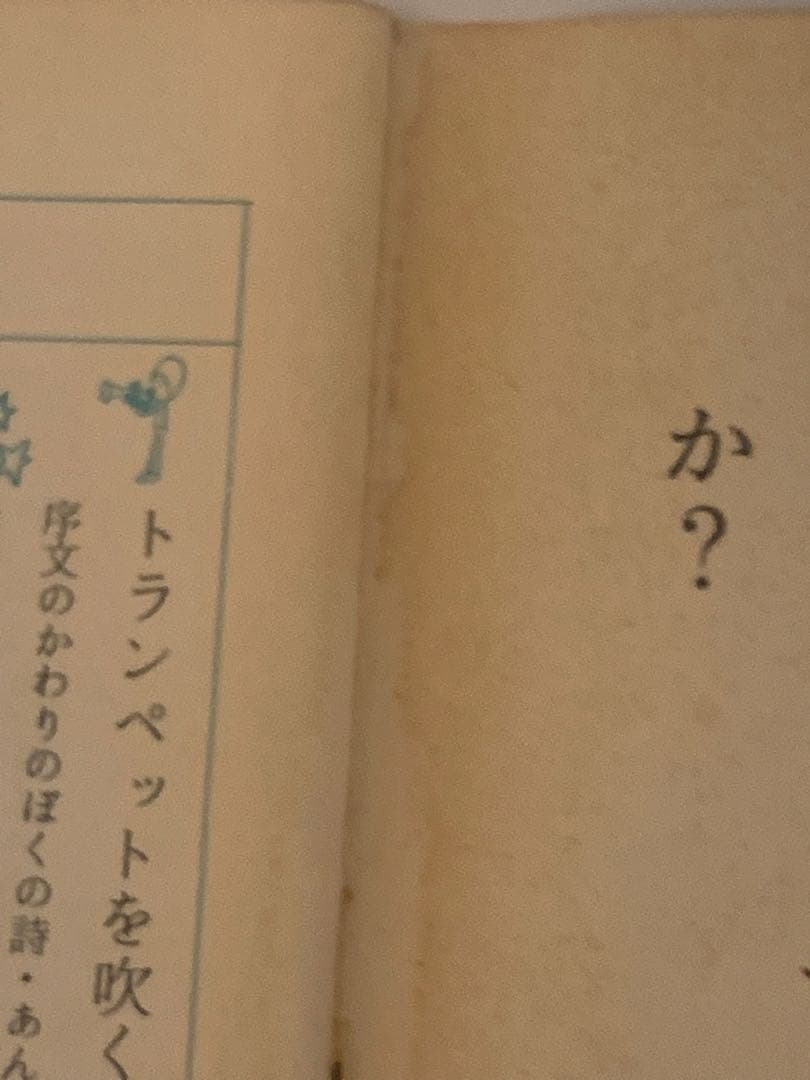 か？
トランペットを吹く
序文のかわりのぼくの詩・あん